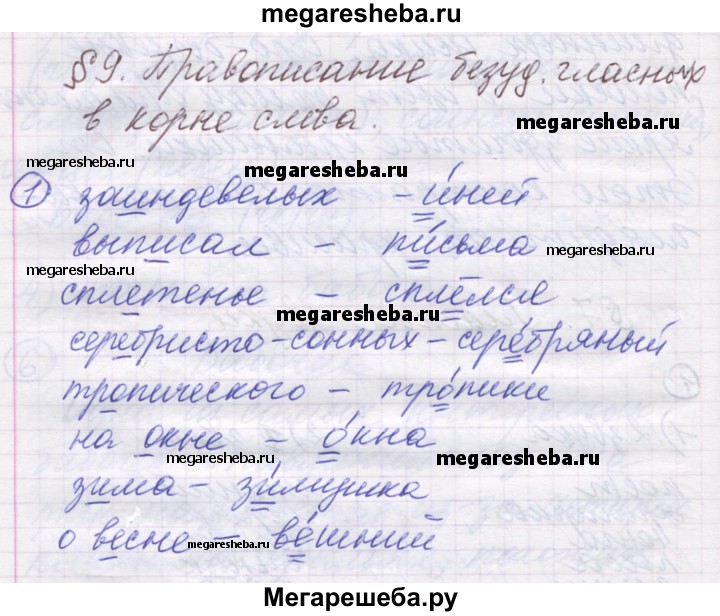 megaresheba.ru
§9. Правописание безуд. гласных
в корне слова.
megaresheba.ru
megaresheba.ru
megaresheba.ru
① заиндевелых - и́ней
выписал - пи́сьма
megaresheba.ru
megaresheba.ru
сплетенье - сплёлся
megaresheba.ru
серебристо-сонных - сере́бряный
тропического - тро́пики
на окне - о́кна
megaresheba.ru
megaresheba.ru
зима - зи́мушка
о весне - ве́шний
megaresheba.ru
Мегарешеба.ру